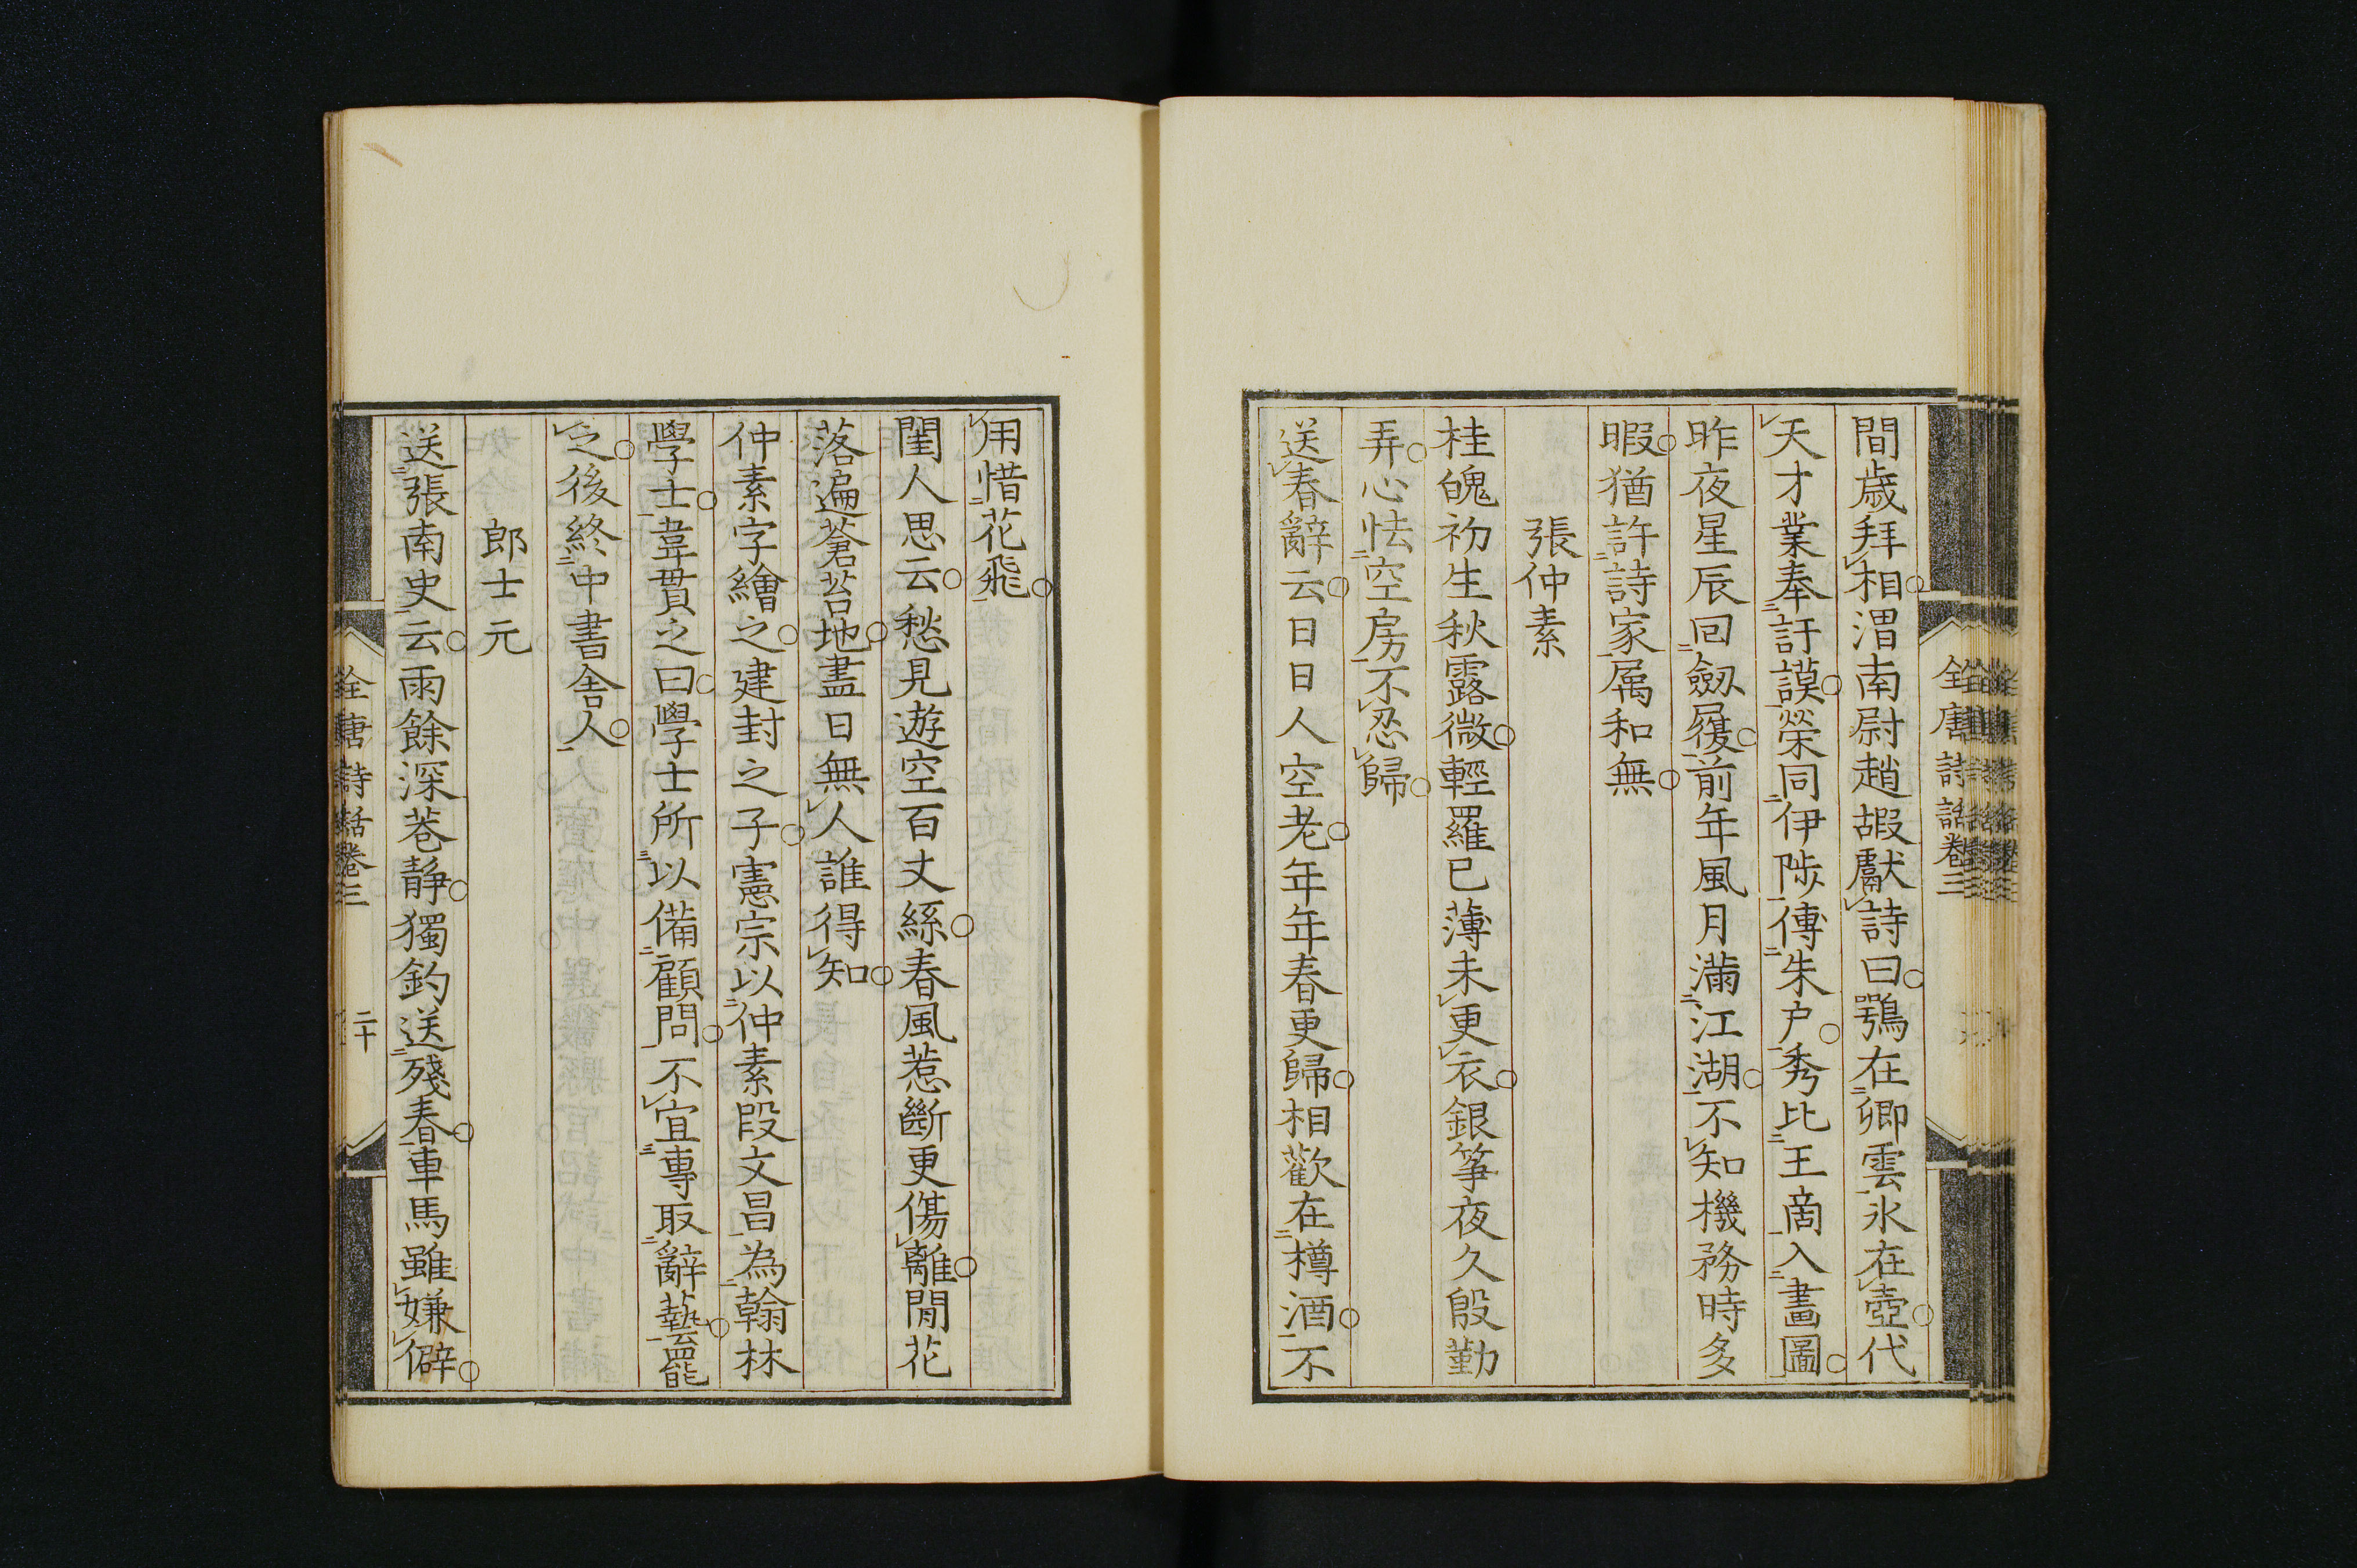 全唐詩話卷三
間歳拜相渭南尉趙嘏獻詩曰鶚在卿雲氷在壺代
天才業奉訏謨榮同伊陟傳朱户秀比王商入畫圖
昨夜星辰回劔履前年風月滿江湖不知機務時多
暇猶許詩家属和無
張仲素
桂魄初生秋露微輕羅已薄未更衣銀筝夜久殷勤
弄心怯空房不忍歸
送春辭云日日人空老年年春更歸相歡在樽酒不
用惜花飛
閨人思云愁見遊空百丈絲春風惹斷更傷離閒花
落遍蒼苔地盡日無人誰得知
仲素字繪之建封之子憲宗以仲素段文昌為翰林
學士韋貫之曰學士所以備顧問不宜專取辭藝罷
之後終中書舍人
郎士元
送張南史云雨餘深巷静獨釣送殘春車馬雖嫌僻
全唐詩話卷三
二十